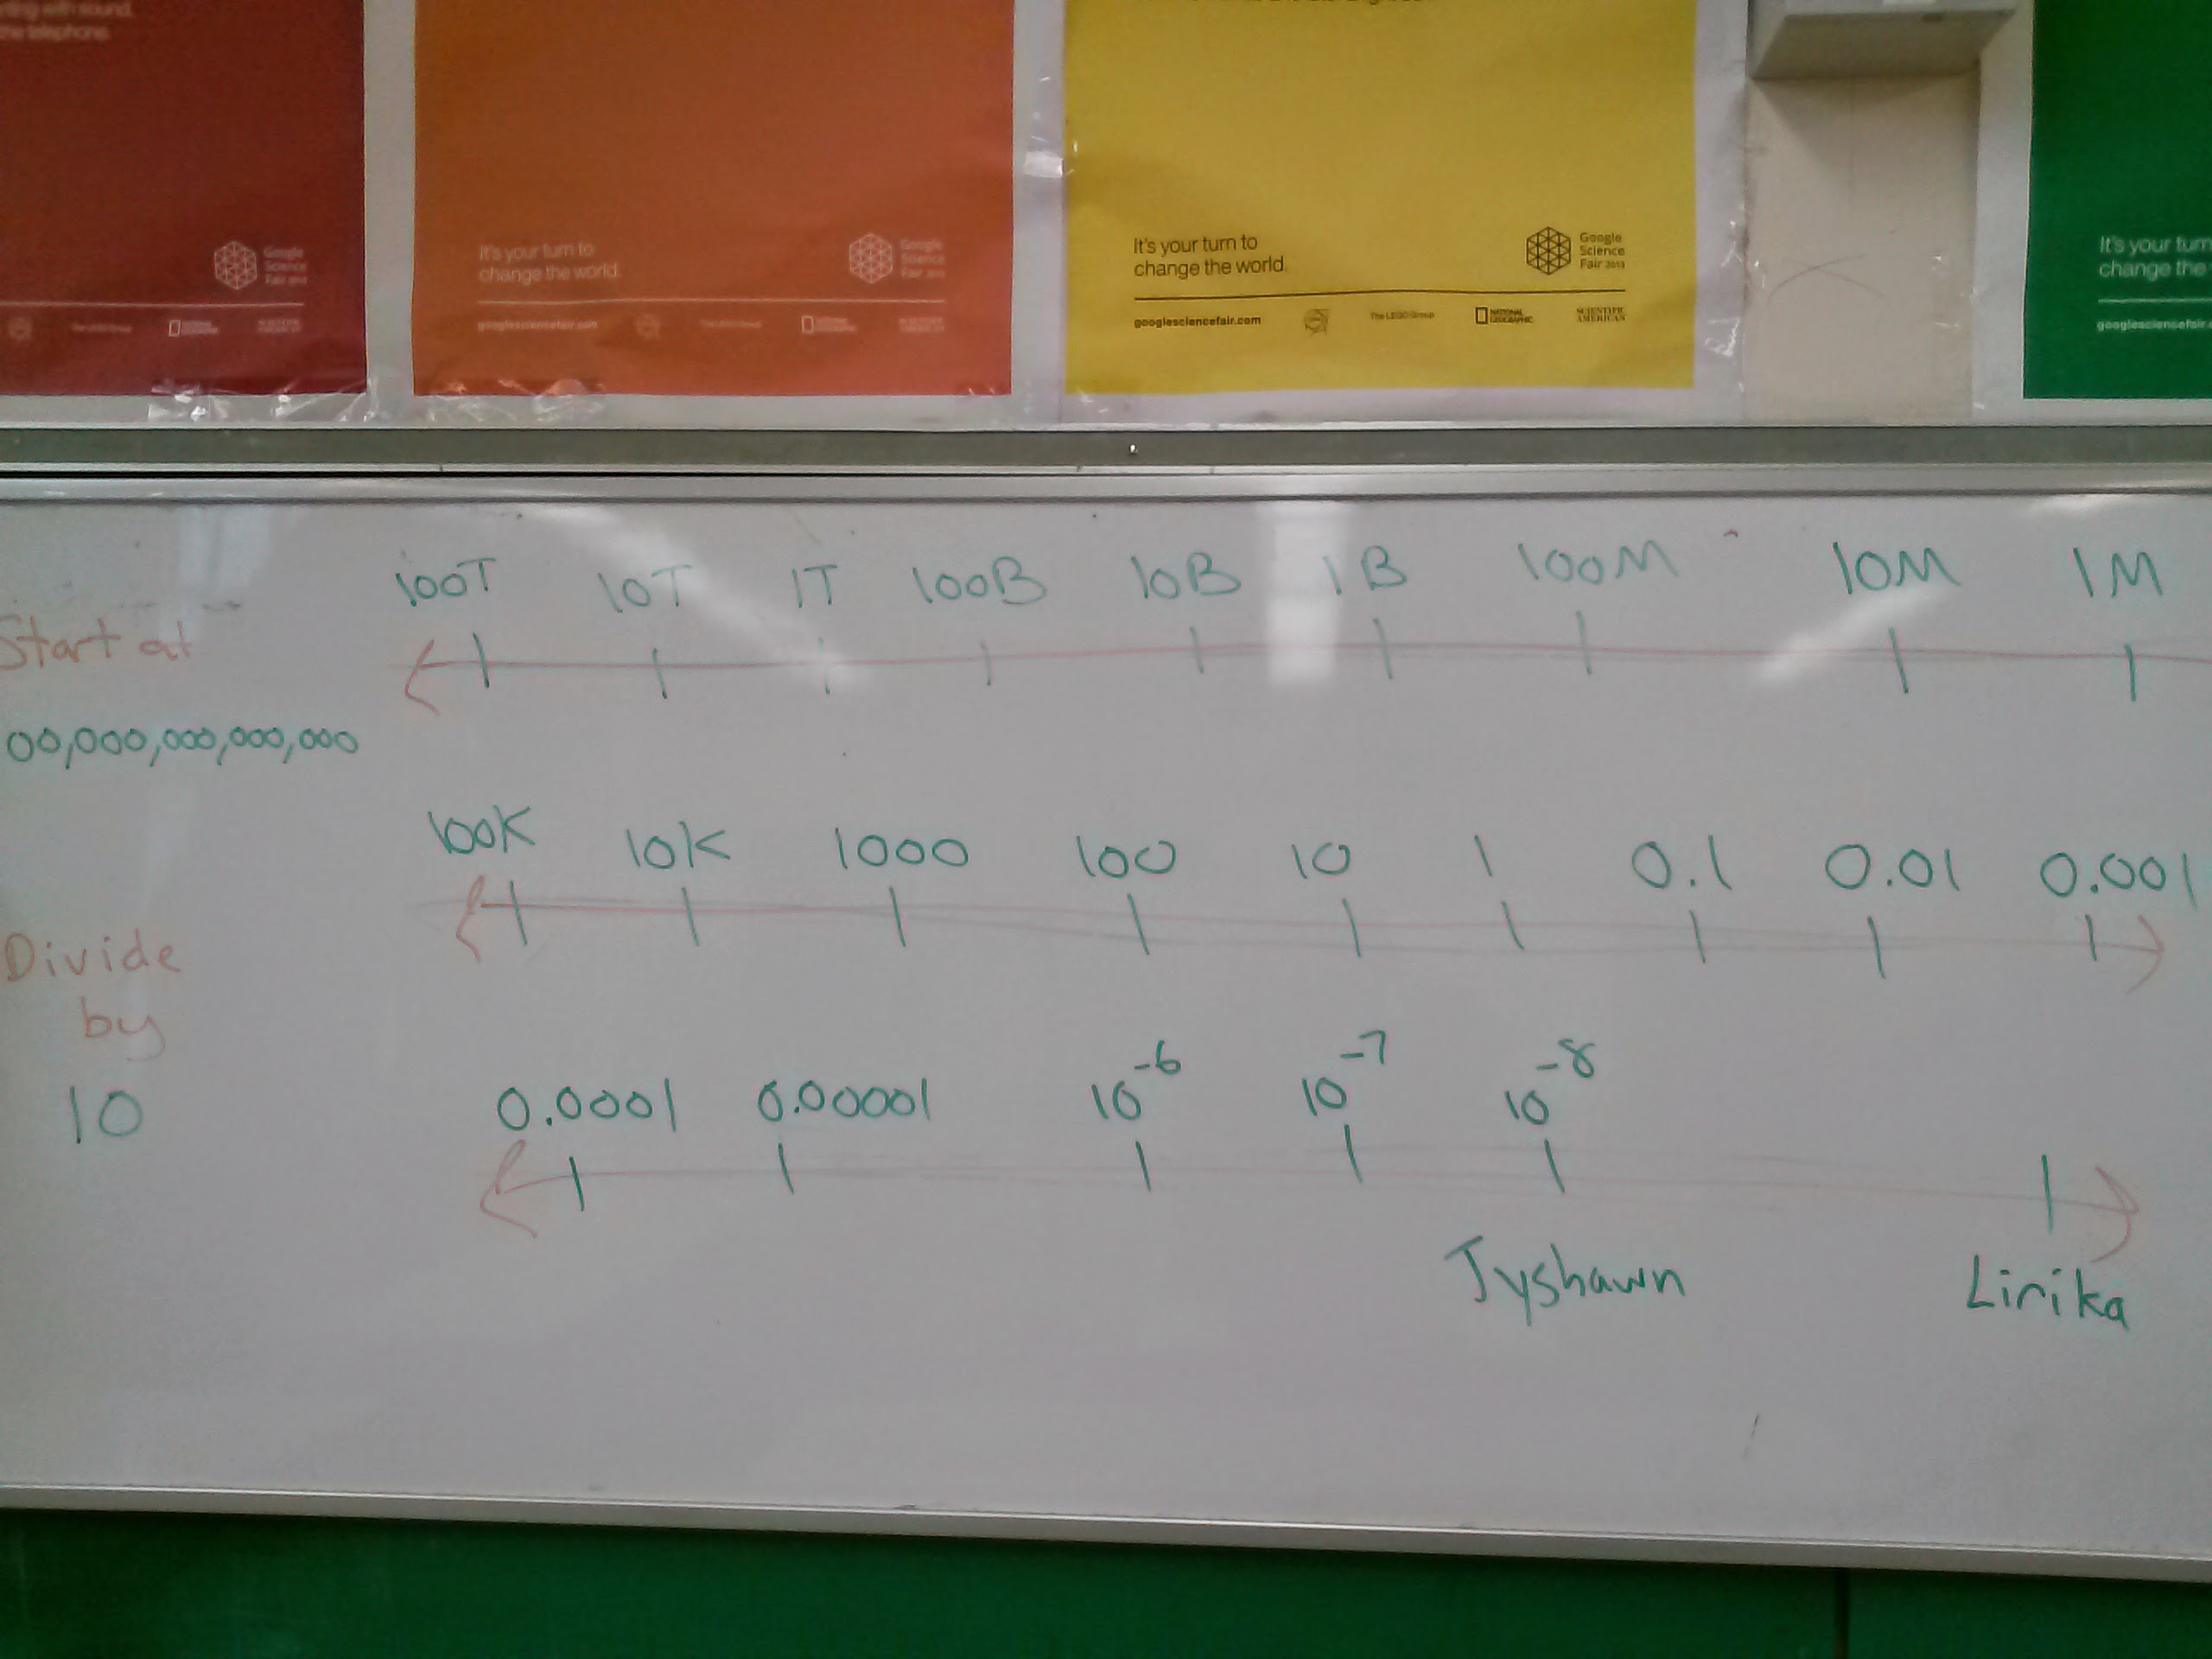 nting with sound.
the telephone.
Google
Science
Fair 2013
The LEGO Group
NATIONAL
GEOGRAPHIC
SCIENTIFIC
AMERICAN
It's your turn to
change the world.
Google
Science
Fair 2013
googlesciencefair.com
The LEGO Group
NATIONAL
GEOGRAPHIC
SCIENTIFIC
AMERICAN
It's your turn to
change the world.
Google
Science
Fair 2013
googlesciencefair.com
The LEGO Group
NATIONAL
GEOGRAPHIC
SCIENTIFIC
AMERICAN
It's your turn
change the
googlesciencefair.c
100T 10T 1T 100B 10B 1B 100M 10M 1M
Start at
00,000,000,000,000
100K 10K 1000 100 10 1 0.1 0.01 0.001
Divide
by
10
0.0001 0.00001 10⁻⁶ 10⁻⁷ 10⁻⁸
Jyshawn Lirika